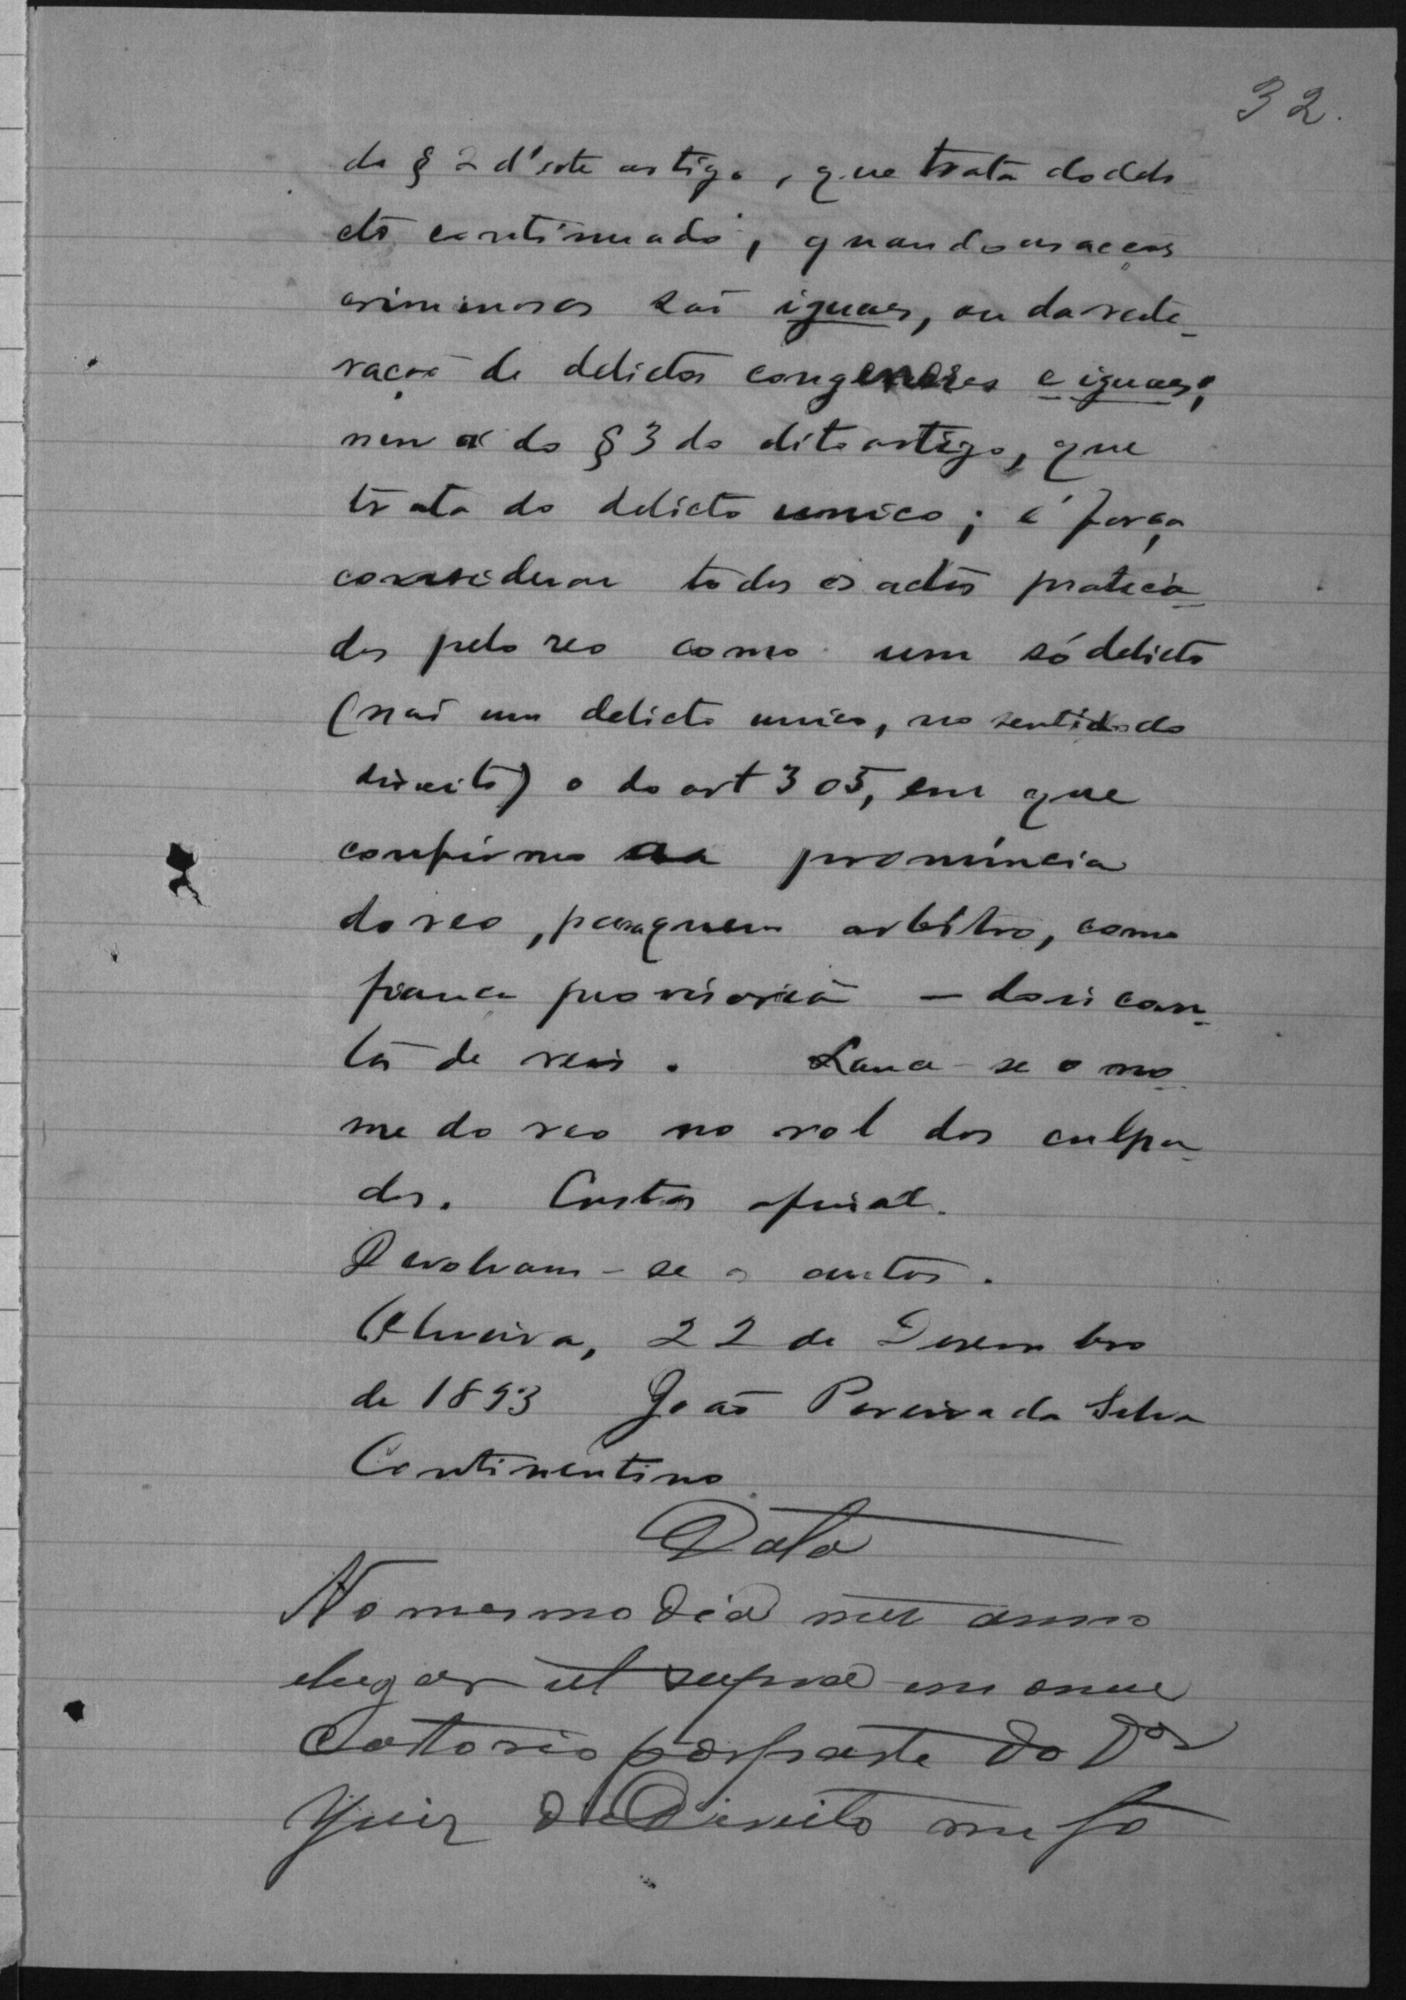 32.
do § 2 d'este artigo, que trata do deli
cto continuado, quando as acções
criminosas são iguaes, ou da reite-
ração de delictos congeneres e iguaes;
nem a do § 3 do dito artigo, que
trata do delicto unico; é força
considerar todos os actos pratica-
dos pelo reo como um só delicto
(não um delicto unico, no sentido do
direito) o do art 305, em que
confirmo a pronúncia
do reo, para quem arbitro, como
fiança provisoria — dois con-
tos de reis. Lance-se o no-
me do reo no rol dos culpa-
dos. Custas afinal.
Devolvam-se os autos.
Oliveira, 22 de Dezembro
de 1893 João Pereira da Silva
Continentino
Data
No mesmo dia mez anno
e lugar ut supra em meu
Cartorio por parte do Dor
Juiz de Direito me fo